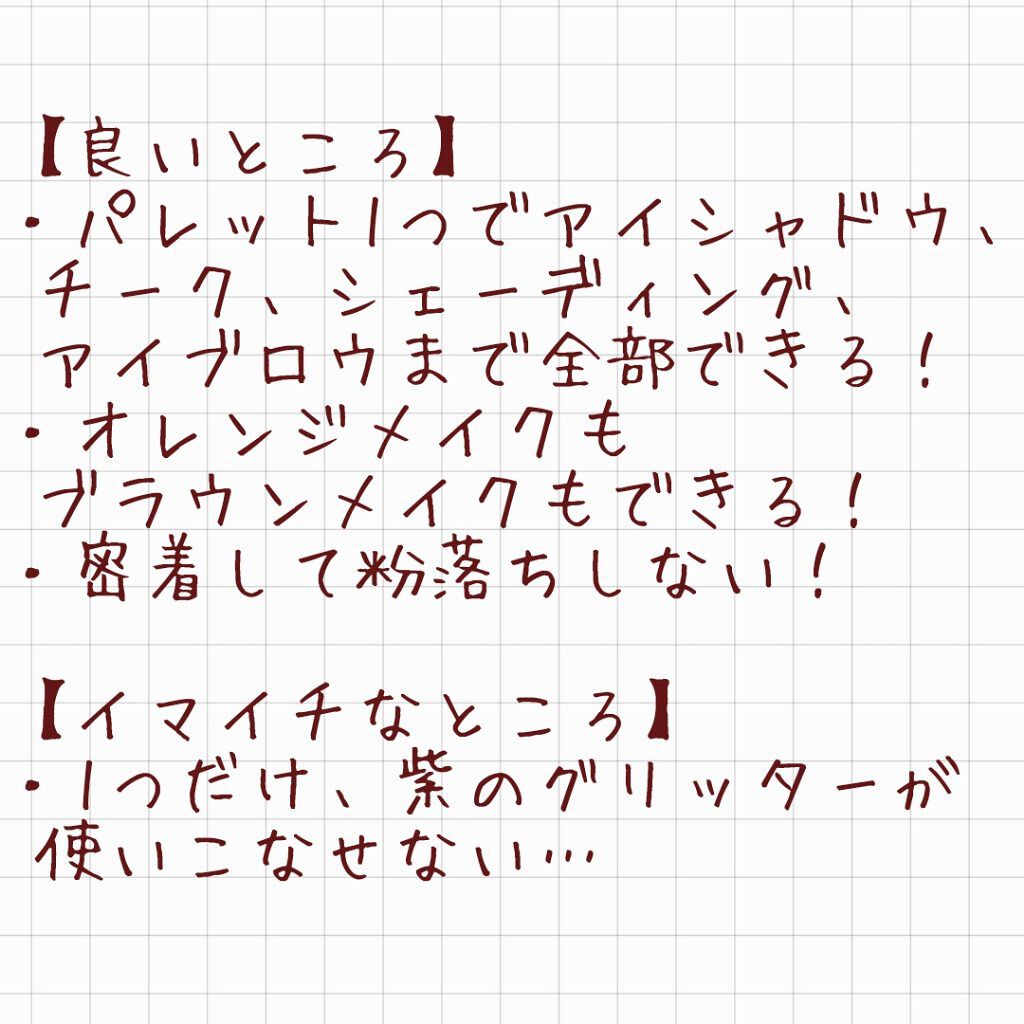 【良いところ】
・パレット1つでアイシャドウ、
チーク、シェーディング、
アイブロウまで全部できる!
・オレンジメイクも
ブラウンメイクもできる!
・密着して粉落ちしない!
【イマイチなところ】
・1つだけ、紫のグリッターが
使いこなせない…